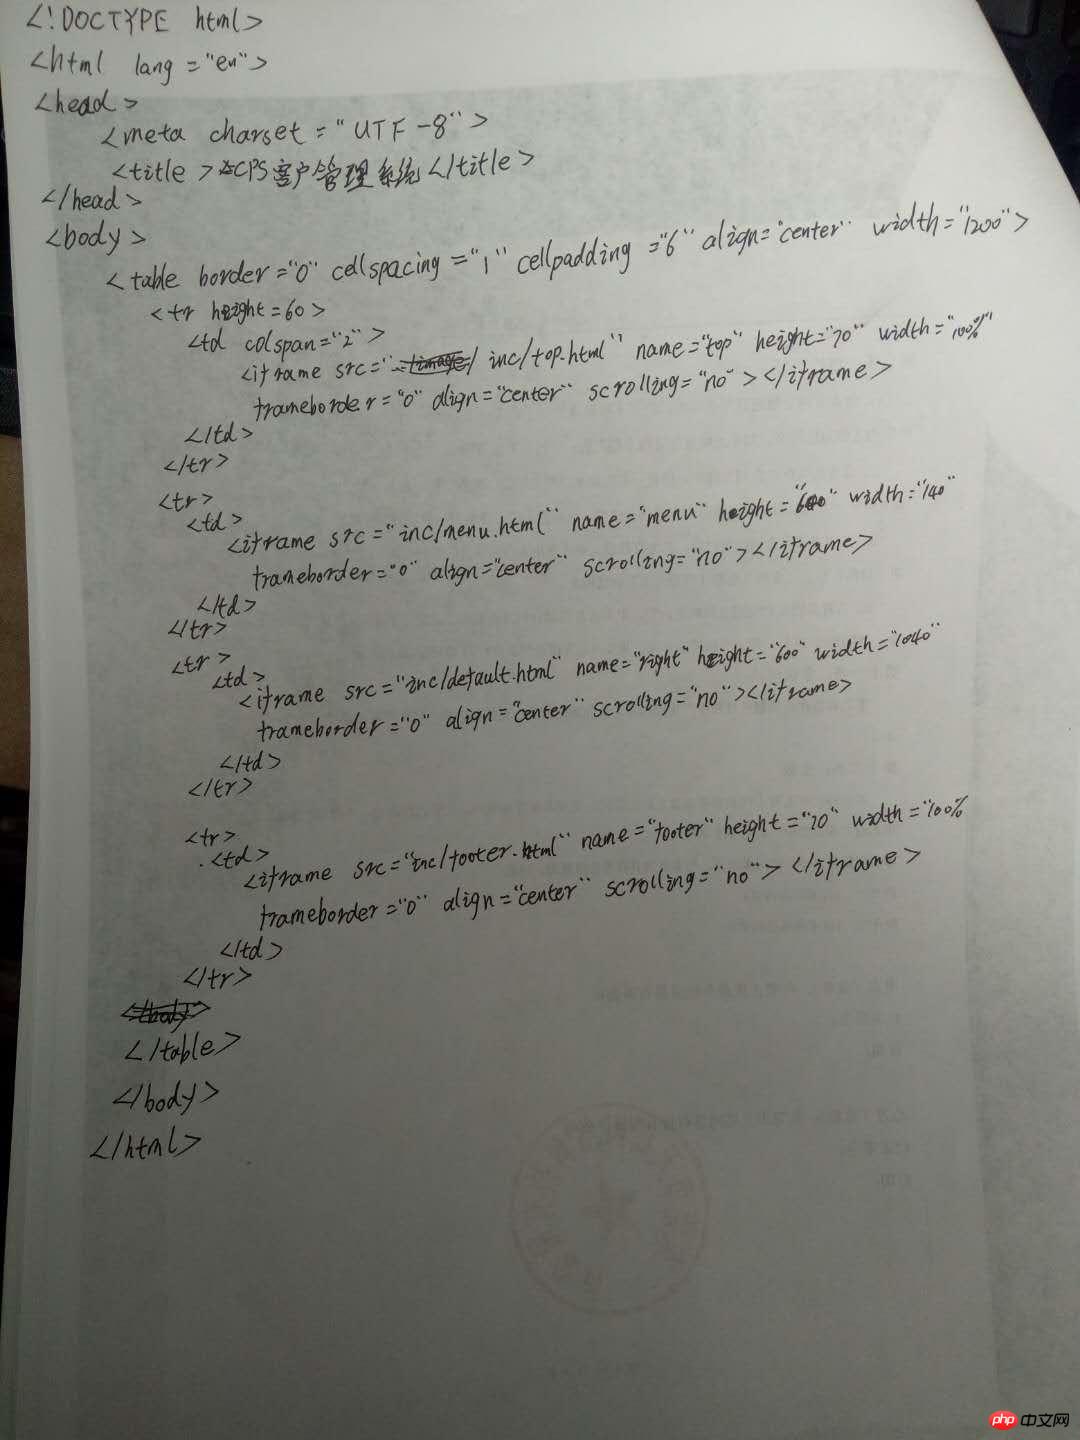 <!DOCTYPE html>
<html lang="en">
<head>
<meta charset="UTF-8">
<title>CPS客户管理系统</title>
</head>
<body>
<table border="0" cellspacing="1" cellpadding="6" align="center" width="1200">
<tr height=60>
<td colspan="2">
<iframe src="inc/top.html" name="top" height="70" width="100%"
frameborder="0" align="center" scrolling="no"></iframe>
</td>
</tr>
<tr>
<td>
<iframe src="inc/menu.html" name="menu" height="600" width="140"
frameborder="0" align="center" scrolling="no"></iframe>
</td>
</tr>
<tr>
<td>
<iframe src="inc/default.html" name="right" height="600" width="1040"
frameborder="0" align="center" scrolling="no"></iframe>
</td>
</tr>
<tr>
<td>
<iframe src="inc/footer.html" name="footer" height="70" width="100%
frameborder="0" align="center" scrolling="no"></iframe>
</td>
</tr>
</table>
</body>
</html>
php中文网